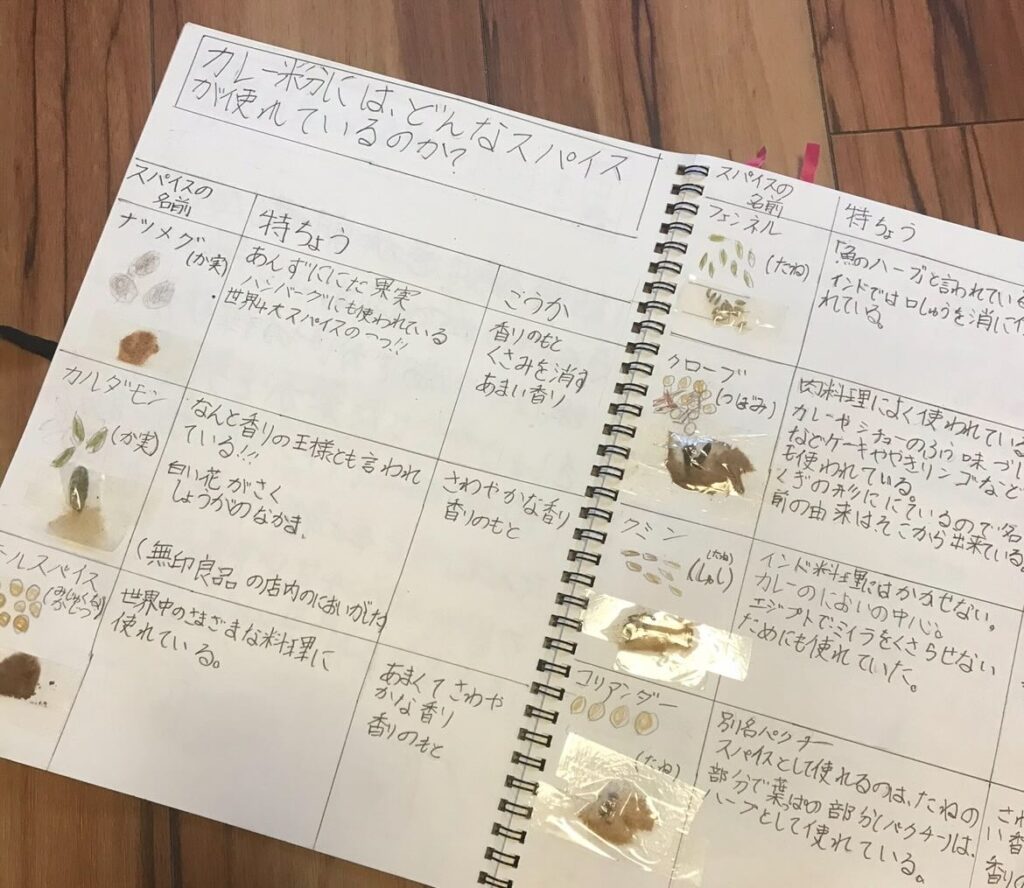 カレー粉には、どんなスパイス
が使れているのか?
スパイスの
名前
特ちょう
こうか
ナツメグ
(か実)
あんずににた果実
ハンバーグにも使われている
世界4大スパイスの一つ!!
香りのもと
くさみを消す
あまい香り
カルダモン
(か実)
なんと香りの王様とも言われ
ている!!
白い花がさく
しょうがのなかま、
(無印良品の店内のにおいがした
さわやかな香り
香りのもと
ールスパイス
世界中のさまざまな料理に
使れている。
あまくてさわや
かな香り
香りのもと
スパイスの
名前
特ちょう
フェンネル
(たね)
「魚のハーブと言われている
インドでは口しゅうを消に
れている。
クローブ
(つぼみ)
肉料理によく使われている
カレーやシチューのふう味づ
などケーキややきリンゴなど
も使われている。
くぎの形ににているので名
前の由来はそこから出来ている。
クミン
(たね)
(しゅし)
インド料理にはかかせない。
カレーのにおいの中心。
エジプトでミイラをくさらせない
ためにも使れていた。
コリアンダー
(たね)
別名パクチー
スパイスとして使れるのは、たねの
部分で葉っぱの部分(パクチー)は、
ハーブとして使れている。
さわ
い香
香りの